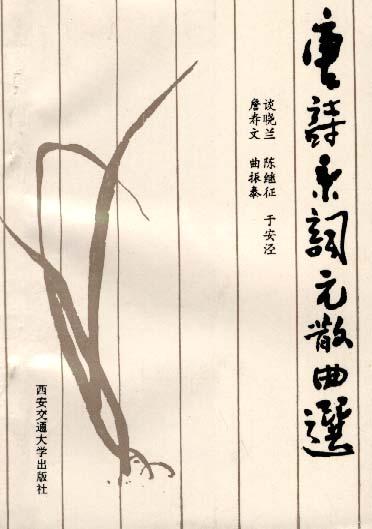 唐詩宋詞元散曲選
谈晓兰 陈继征 于安泾
詹养文 曲振泰
西安交通大学出版社